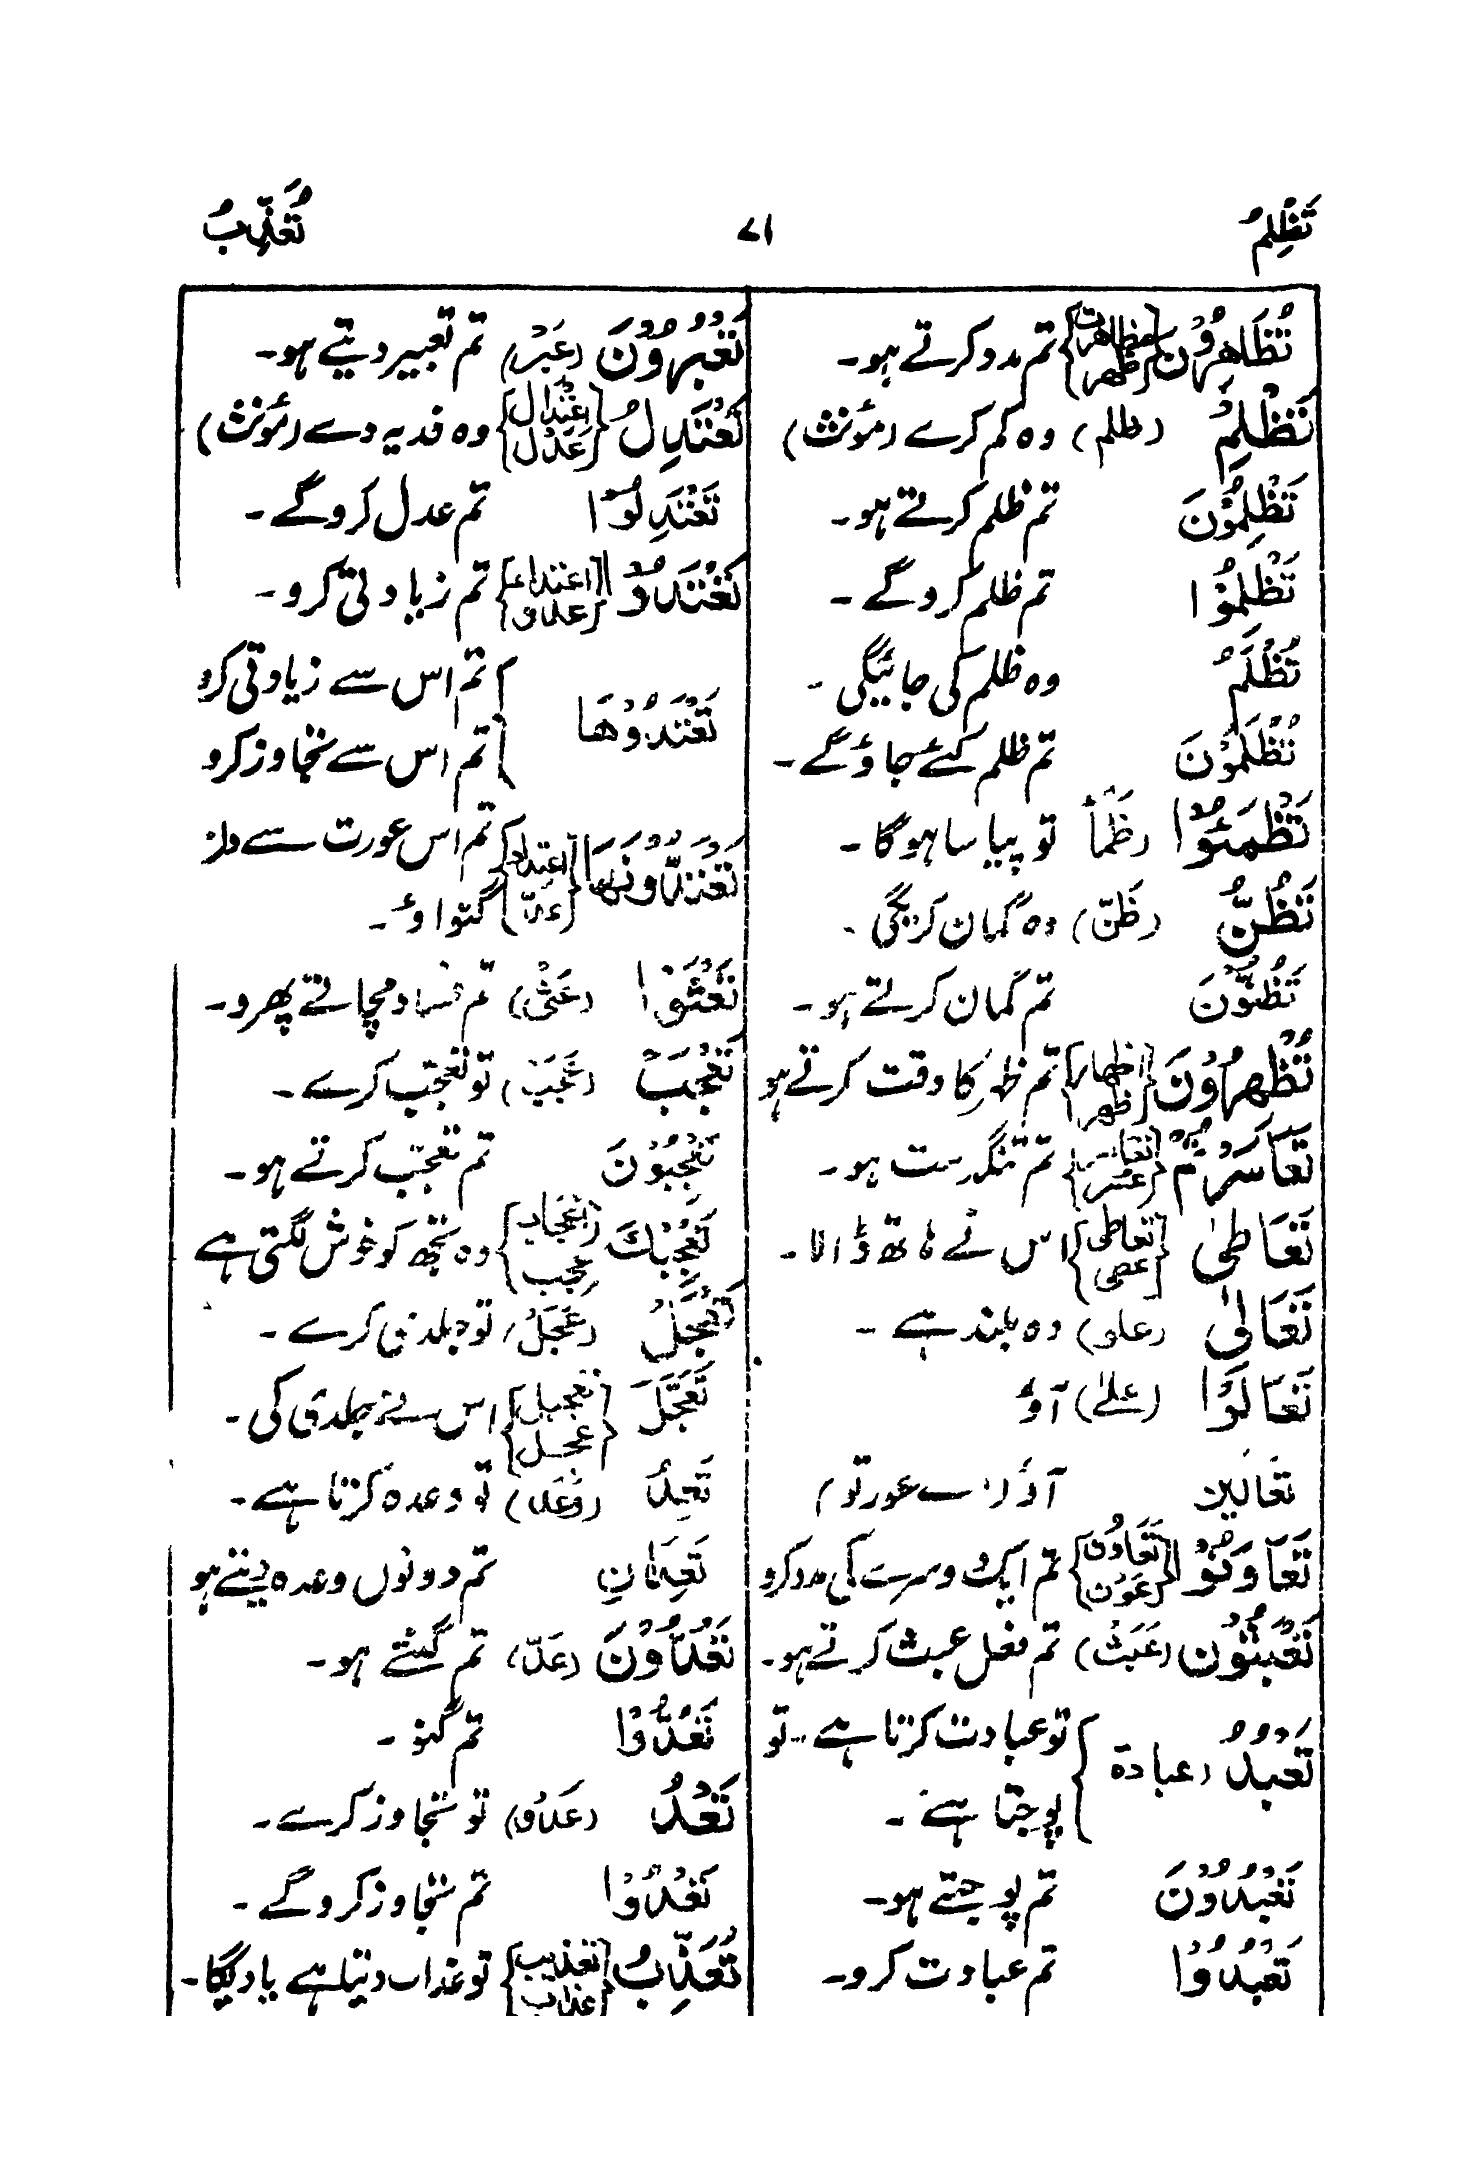 تَظْلِمُ ۷۱ تُعَذِّبُ
تُظَاهِرُوْنَ {مظاهرت ظهر} تم مدد کرتے ہو۔
تَظْلِمُ (ظلم) وہ کم کرے (مؤنث)
تَظْلِمُوْنَ تم ظلم کرتے ہو۔
تَظْلِمُوْا تم ظلم کروگے ۔
تُظْلَمُ وہ ظلم کی جائیگی ۔
تُظْلَمُوْنَ تم ظلم کئے جاؤگے ۔
تَظْمَئُوْا (ظَمَأ تو پیاسا ہوگا ۔
تَظُنُّ (ظَنّ) وہ گمان کریگی ۔
تَظُنُّوْنَ تم گمان کرتے ہو۔
تُظْهِرُوْنَ {اظهار ظهر} تم ظہر کا وقت کرتے ہو
تَعَاسَرْتُمْ {تعاسر عسر} تم تنگدست ہو۔
تَعَاطٰى {تعاطى عطى} اس نے ہاتھ ڈالا ۔
تَعَالٰى (علو) وہ بلند ہے ۔
تَعَالَوْا (علىٰ) آؤ
تَعَالَيْنَ آؤ (اے عورتوں)
تَعَاوَنُوْا {تَعَاوُن عَوْن} تم ایک دوسرے کی مدد کرو
تَعْبَثُوْنَ (عَبَثْ) تم فعل عبث کرتے ہو۔
تَعْبُدُ (عبادة} تو عبادت کرتا ہے ۔ تو
پوجتا ہے ۔
تَعْبُدُوْنَ تم پوجتے ہو۔
تَعْبُدُوْا تم عبادت کرو۔
تَعْبُرُوْنَ (عَبْرٌ) تم تعبیر دیتے ہو۔
تَعْتَدِلُ {اِعْتِدَال عَدْل} وہ فدیہ دے (مؤنث)
تَعْتَدِلُوْا تم عدل کروگے ۔
تَعْتَدُوْا {اعتداء عدو} تم زیادتی کرو ۔
تَعْتَدُوْهَا } تم اس سے زیادتی کرو
تم اس سے تجاوز کرو
تَعْتَدُّوْنَهَا {اعتداد عدّ} تم اس عورت سے
گنواؤ ۔
تَعْثَوْا (عَثْى) تم فساد مچاتے پھرو۔
تَعْجَبْ (عَجَبْ) تو تعجّب کرے ۔
تَعْجَبُوْنَ تم تعجّب کرتے ہو۔
تُعْجِبُكَ {اِعْجَاب عجب} وہ تجھ کو خوش لگتی ہے
تَعْجَلْ (عَجَلْ) تو جلدی کرے ۔
تَعَجَّلَ {تعجیل عجل} اس نے جلدی کی ۔
تَعِدُ (وَعْد) تو وعدہ کرتا ہے ۔
تَعِدَانِ تم دونوں وعدہ دیتے ہو
تَعُدُّوْنَ (عَدّ) تم گنتے ہو۔
تَعُدُّوْا تم گنو ۔
تَعْدُ (عَدْو) تو تجاوز کرے ۔
تَعْدُوْا تم تجاوز کروگے ۔
تُعَذِّبُ {تعذیب عذاب} تو عذاب دیتا ہے یا دیگا ۔